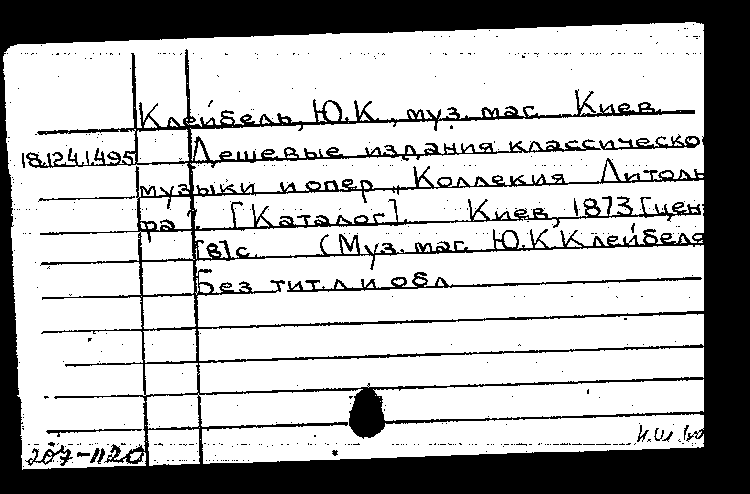 Клейбель, Ю.К., муз. маг. Киев.
18.124.1.495 Дешевые издания классическо
музыки и опер „Коллекия Литоль
ра". [Каталог]. Киев, 1873 [цен
[8] с. (Муз. маг. Ю.К. Клейбеля
Без тит. л и обл.
207-1120